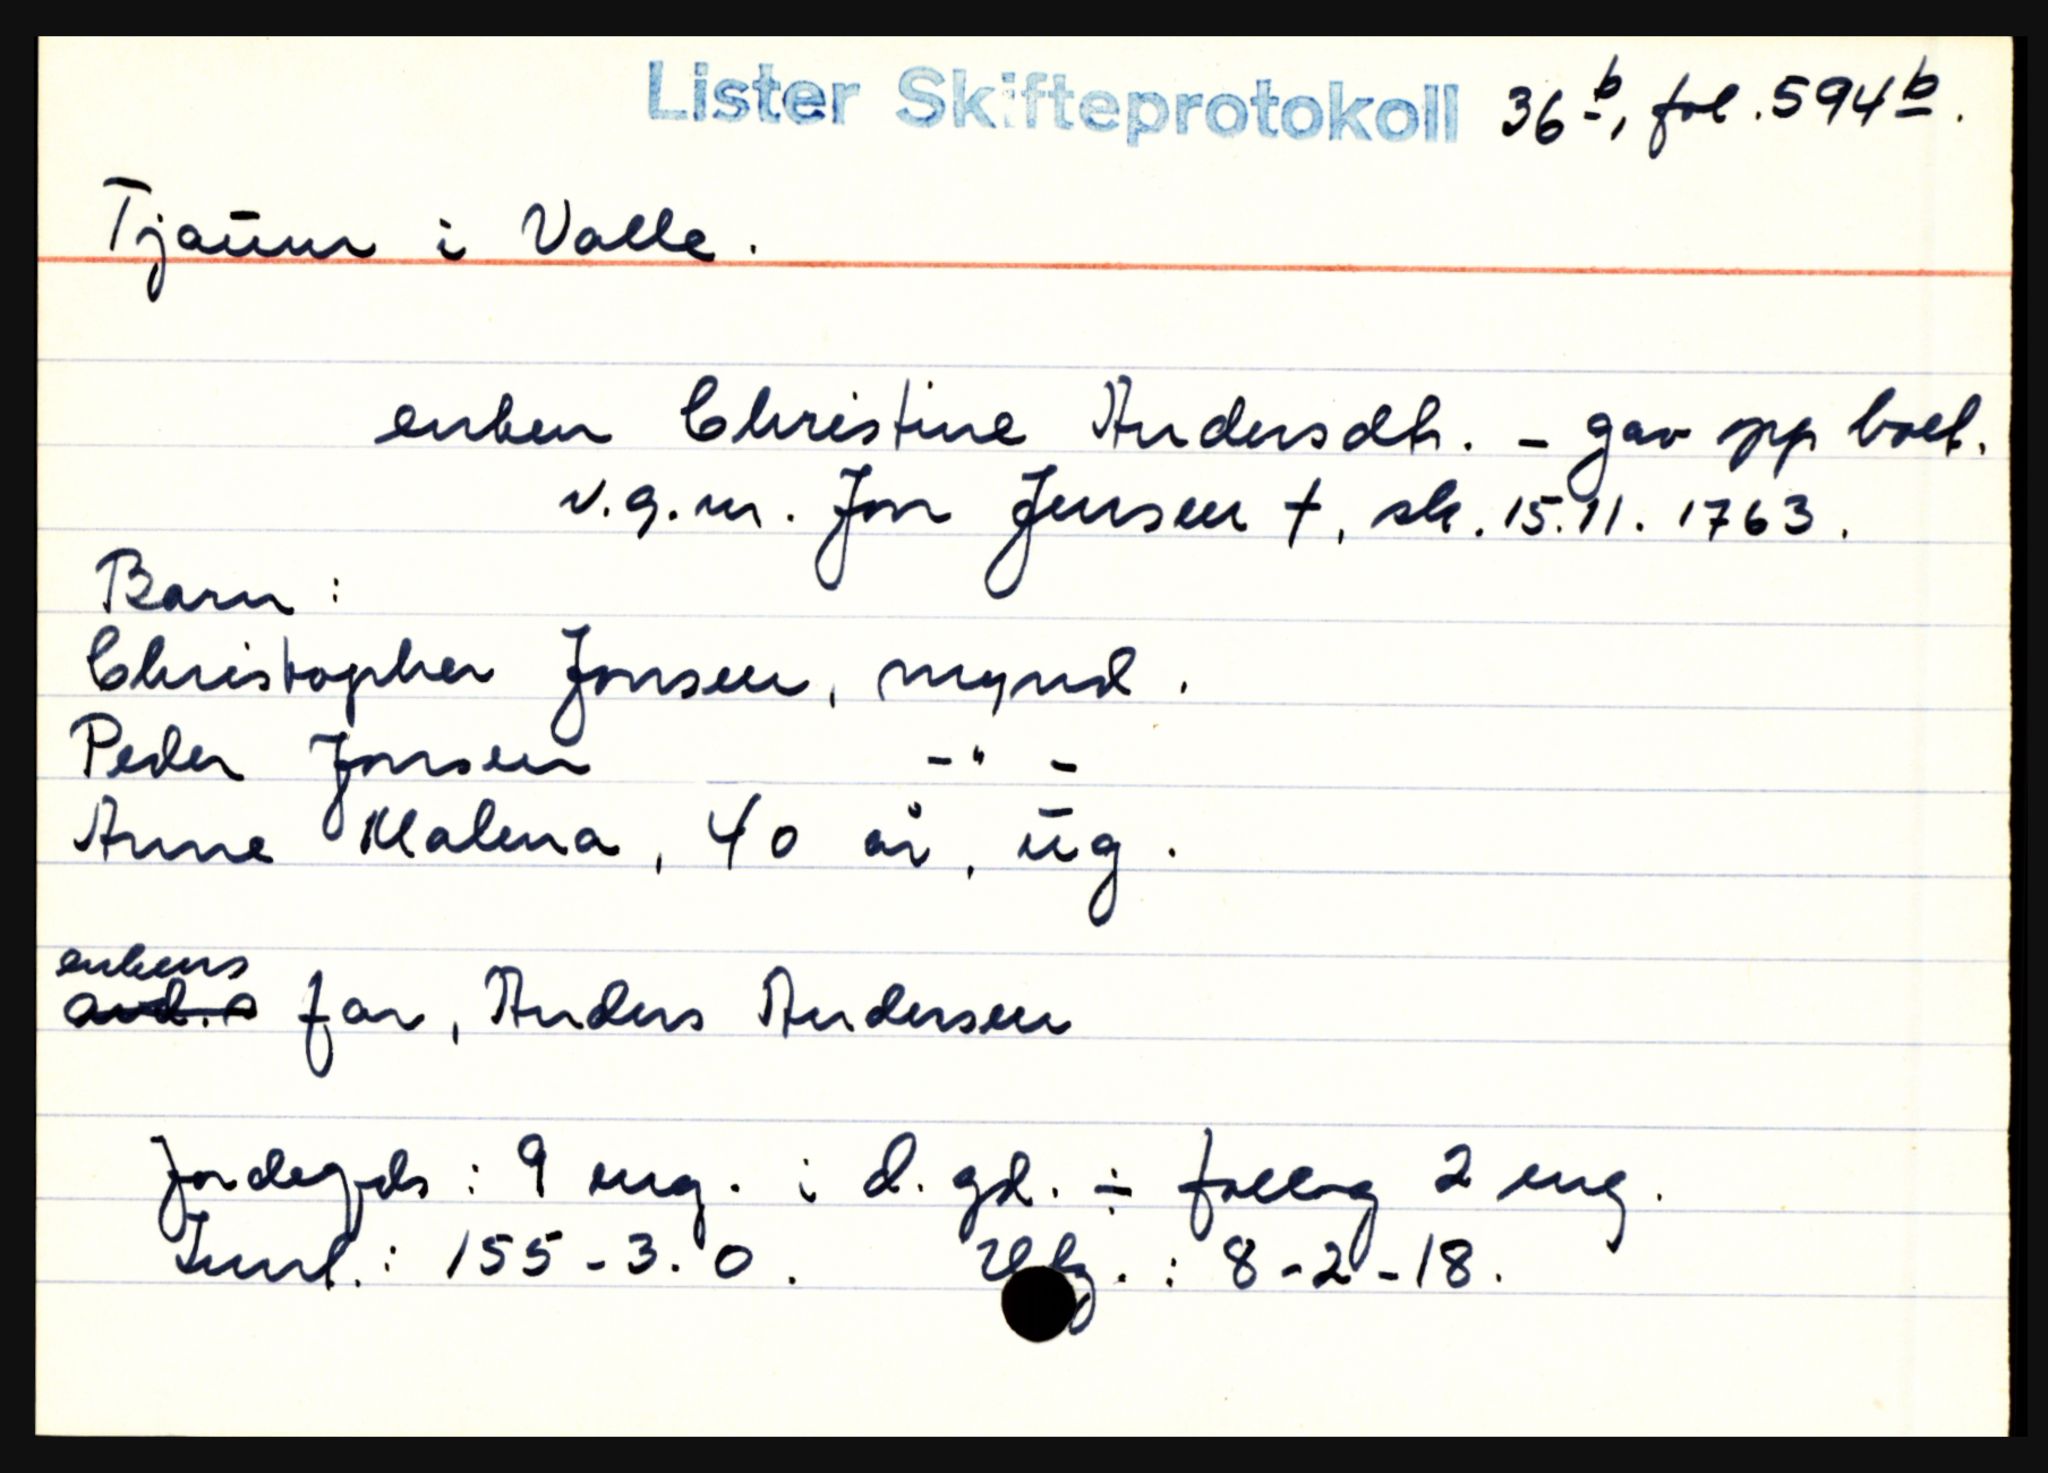 Lister Skifteprotokoll 36 b, fol. 594 b.
Tjaum i Valle.
enken Christine Andersdtr. - gav opp boet.
v.g.m. Jon Jensen †, sk. 15.11. 1763.
Barn:
Christopher Jonsen, mynd.
Peder Jonsen -"-
Anne Malena, 40 år, ug.
enkens
avd.s far, Anders Andersen
Jordegods: 9 eng. i d. gd. ÷ follog 2 eng.
Innt.: 155-3.0. Utg.: 8-2-18.